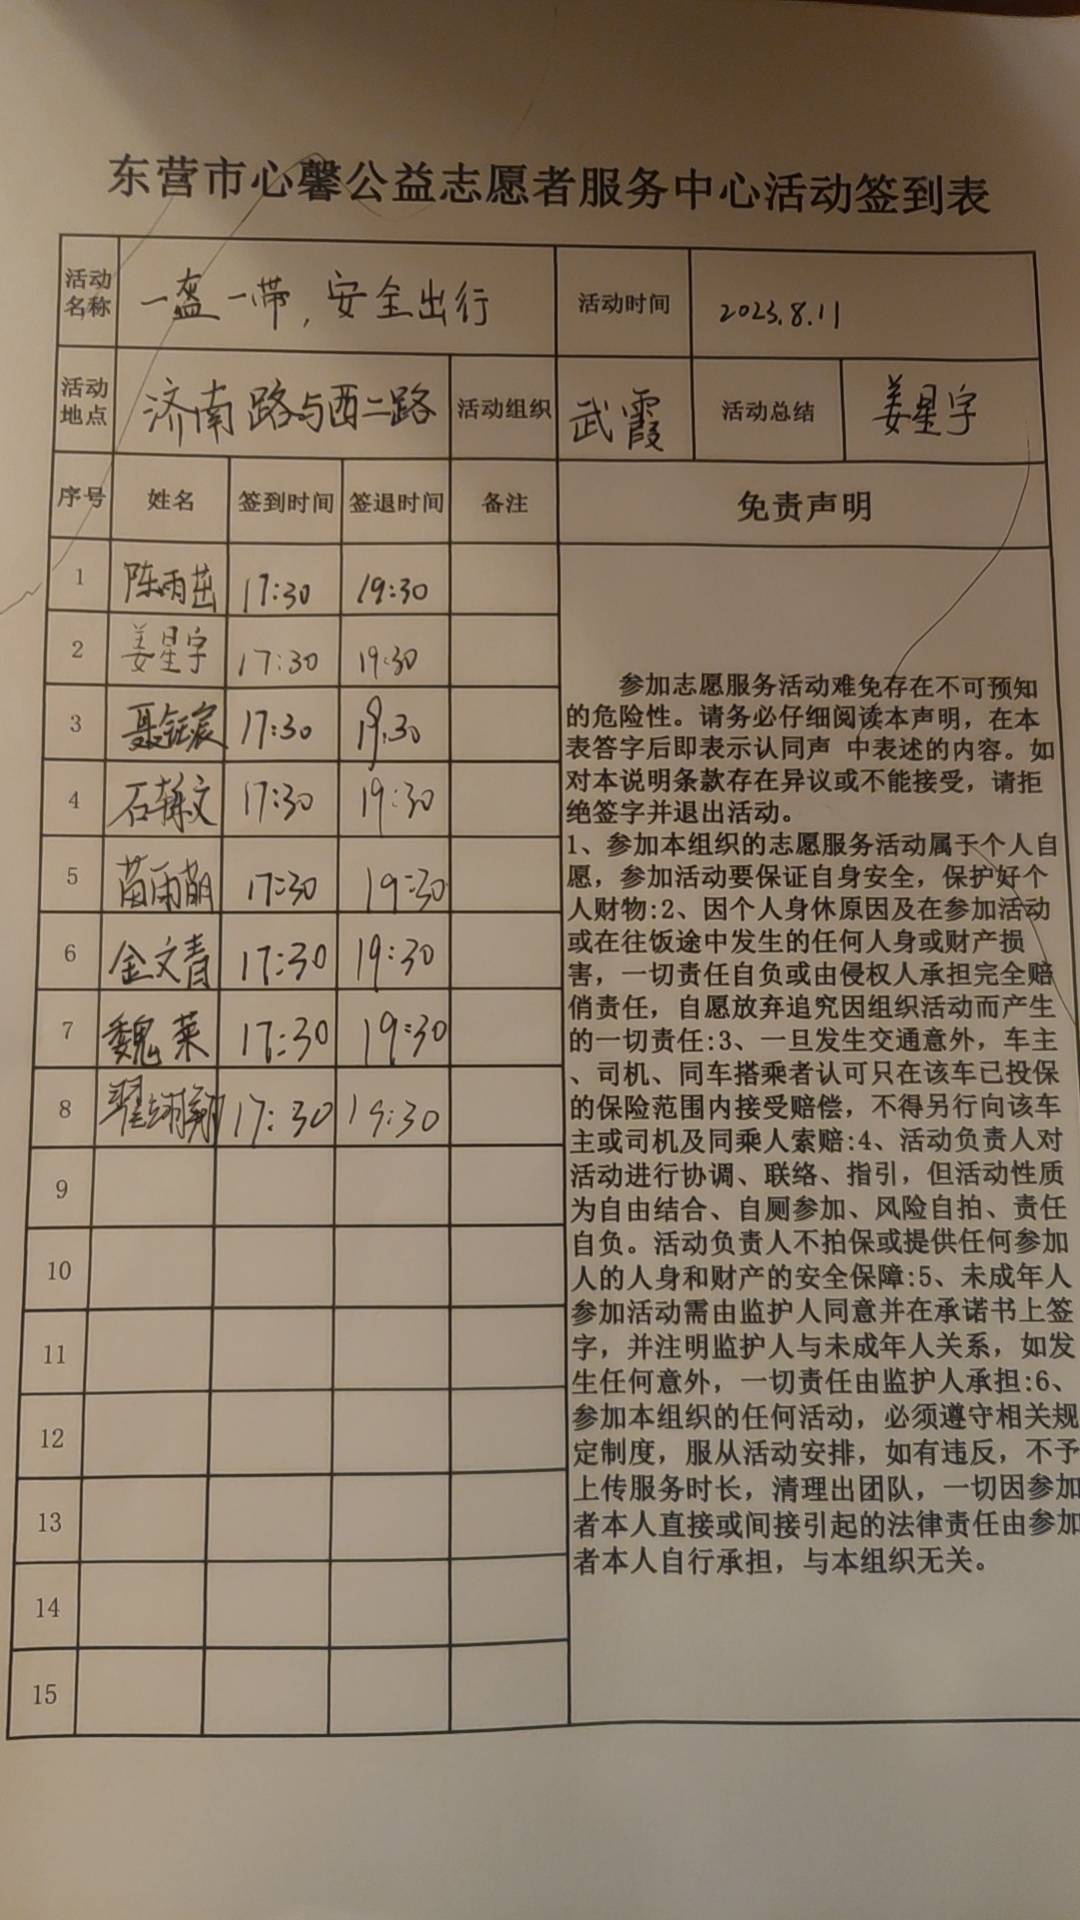 东营市心馨公益志愿者服务中心活动签到表
活动名称 一盔一带,安全出行 活动时间 2023.8.11
活动地点 济南路与西二路 活动组织 武霞 活动总结 姜星宇
序号 姓名 签到时间 签退时间 备注 免责声明
1 陈雨茁 17:30 19:30
2 姜星宇 17:30 19:30
3 聂钰宸 17:30 19.30
4 石静文 17:30 19:30
5 苗雨萌 17:30 19:30
6 金文青 17:30 19:30
7 魏莱 17:30 19:30
8 翟翊翔 17:30 19:30
9
10
11
12
13
14
15
参加志愿服务活动难免存在不可预知
的危险性。请务必仔细阅读本声明，在本
表答字后即表示认同声 中表述的内容。如
对本说明条款存在异议或不能接受，请拒
绝签字并退出活动。
1、参加本组织的志愿服务活动属于个人自
愿，参加活动要保证自身安全，保护好个
人财物:2、因个人身休原因及在参加活动
或在往饭途中发生的任何人身或财产损
害，一切责任自负或由侵权人承担完全赔
俏责任，自愿放弃追究因组织活动而产生
的一切责任:3、一旦发生交通意外，车主
、司机、同车搭乘者认可只在该车已投保
的保险范围内接受赔偿，不得另行向该车
主或司机及同乘人索赔:4、活动负责人对
活动进行协调、联络、指引，但活动性质
为自由结合、自厕参加、风险自拍、责任
自负。活动负责人不拍保或提供任何参加
人的人身和财产的安全保障:5、未成年人
参加活动需由监护人同意并在承诺书上签
字，并注明监护人与未成年人关系，如发
生任何意外，一切责任由监护人承担:6、
参加本组织的任何活动，必须遵守相关规
定制度，服从活动安排，如有违反，不予
上传服务时长，清理出团队，一切因参加
者本人直接或间接引起的法律责任由参加
者本人自行承担，与本组织无关。